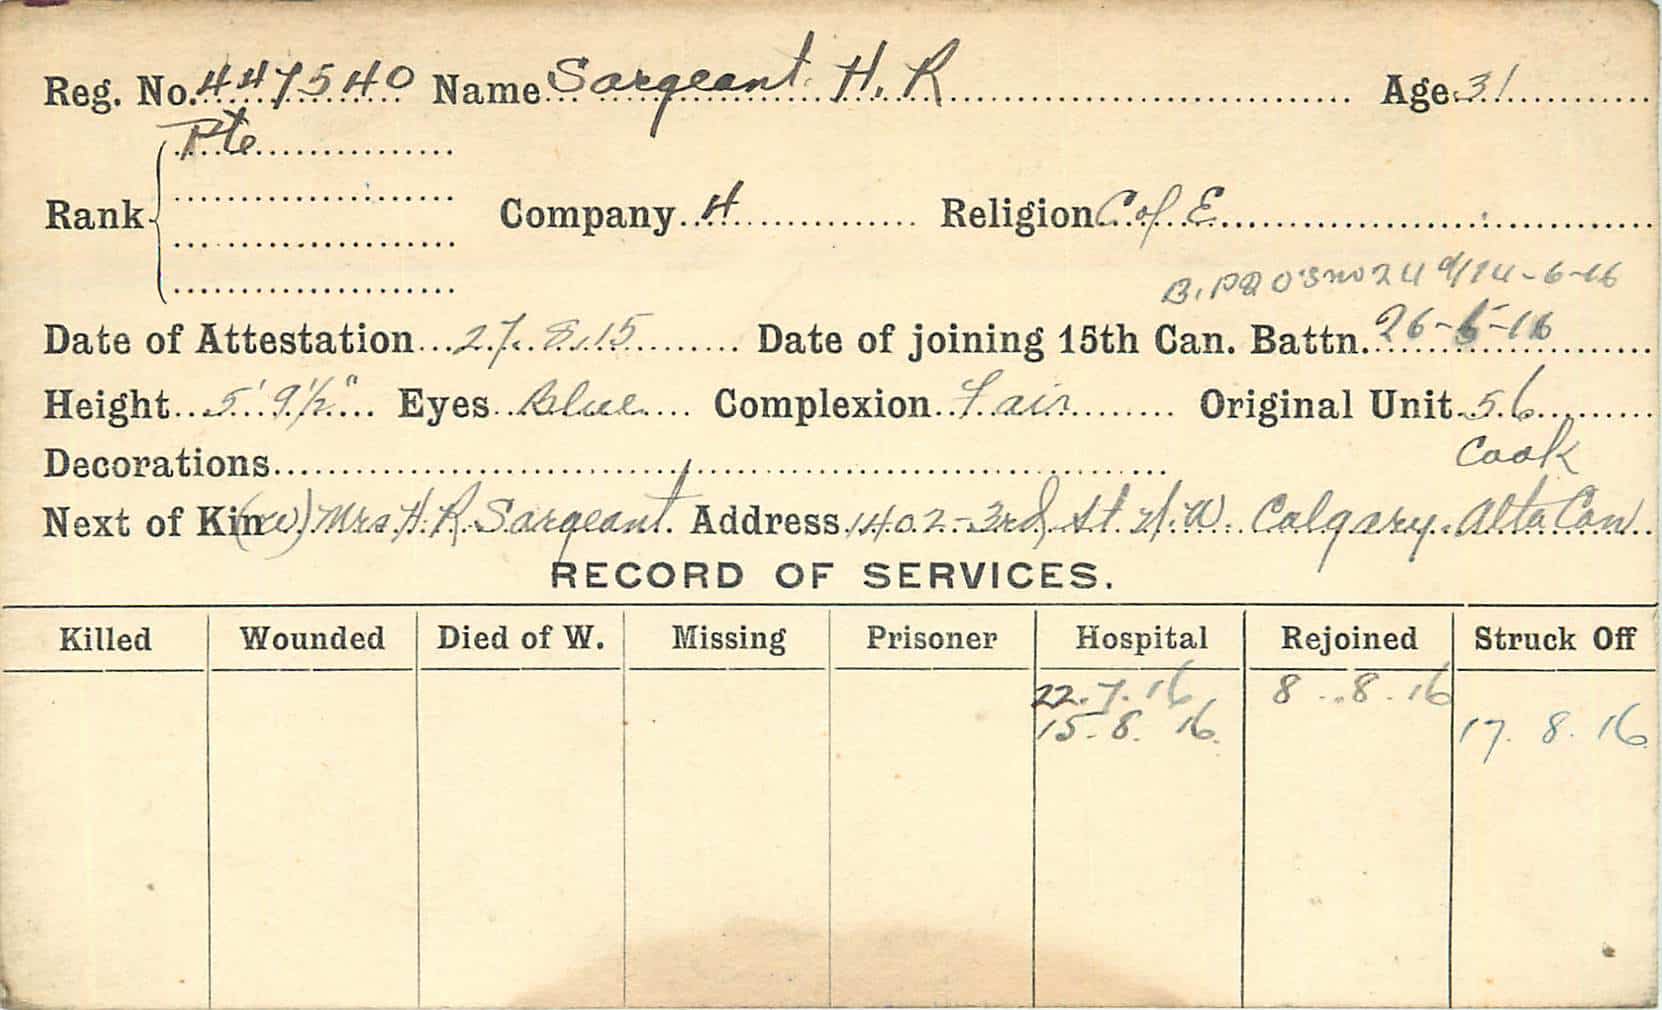 Reg. No. 447540 Name Sargeant. H. R Age 31
Pte
Rank Company 4 Religion C of E
24 14-6-16
Date of Attestation 27.8.15 Date of joining 15th Can. Battn. 26-5-16
Height 5' 9½" Eyes Blue Complexion Fair Original Unit 56
Decorations Cook
Next of Kin (w) Mrs H. R. Sargeant. Address 1402-3rd St. N. W. Calgary. Alta Can.
RECORD OF SERVICES.
Killed Wounded Died of W. Missing Prisoner Hospital Rejoined Struck Off
22.7.16 8.8.16
15.8.16. 17.8.16